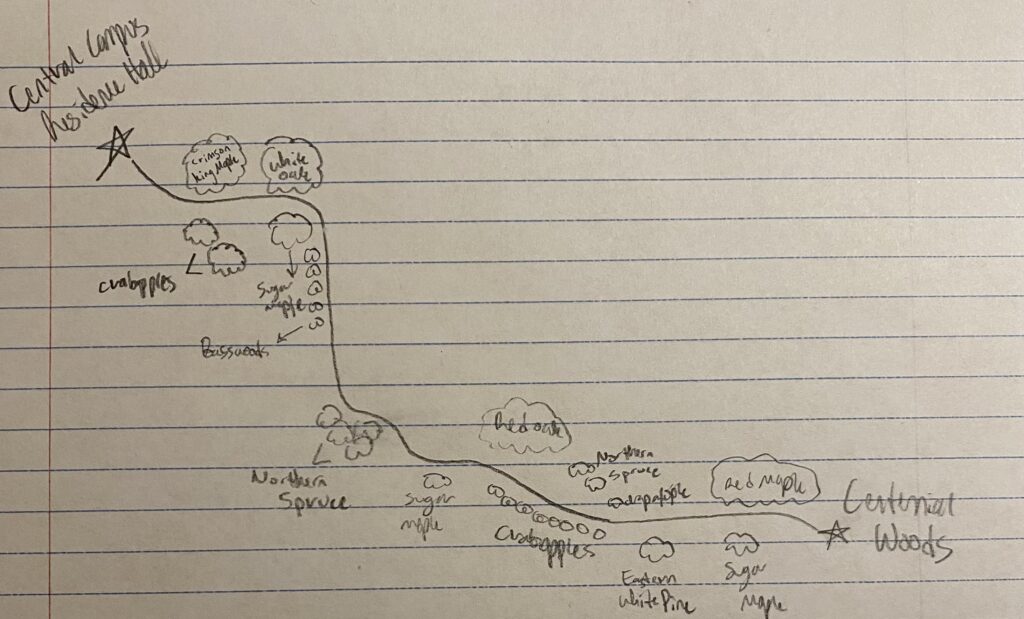 Central Campus
Residence Hall
Crimson
King Maple
White
oak
crabapples
Sugar
maple
Basswoods
Red oak
Northern
Spruce
Northern
Spruce
Sugar
maple
Crabapples
red maple
Centennial
Woods
Eastern
White Pine
Sugar
Maple